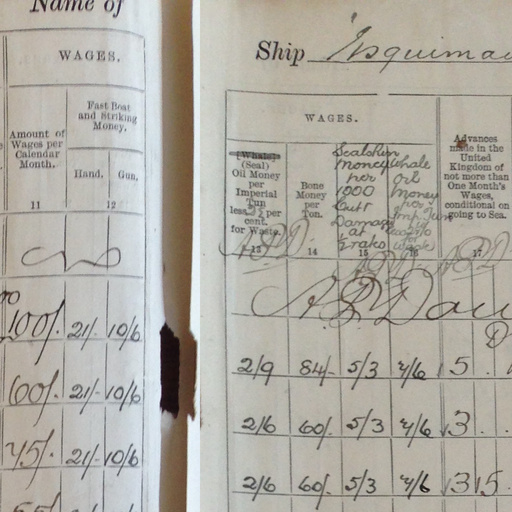 Name of
WAGES.
Amount of
Wages per
Calendar
Month.
Fast Boat
and Striking
Money.
Hand. Gun,
11 12
100/. 21/- 10/6
60/. 21/- 10/6
45/. 21/- 10/6
Ship Esquimau
WAGES.
(Whale)
(Seal)
Oil Money
per
Imperial
Tun
less 5 per
cent.
for Waste.
13
Bone
Money
per
Ton.
14
Sealskin
money
per
1000
Damag
at
15
Whale
oil
Money
16
Advances
made in the
United
Kingdom of
not more than
One Month's
Wages,
conditional on
going to Sea.
17
2/9 84/- 5/3 4/6 5 .
2/6 60/. 5/3 4/6 3 . .
2/6 60/. 5/3 4/6 3 15 .